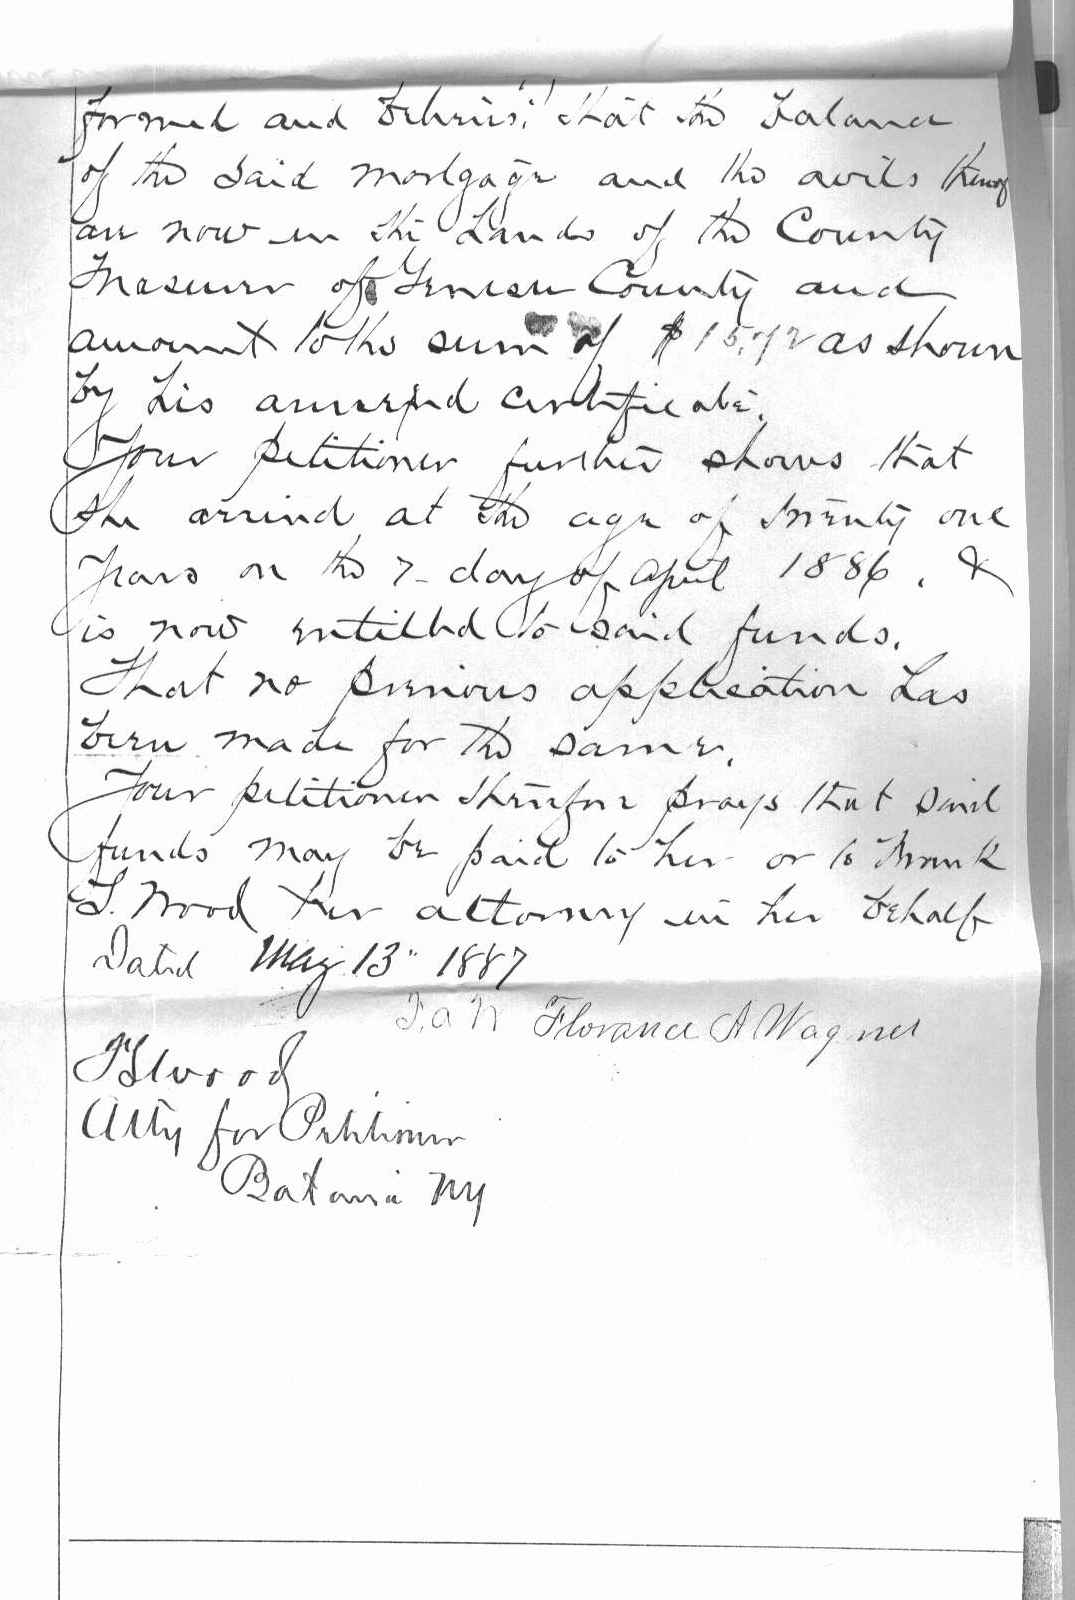 formed and believes that the balance
of the said mortgage and the avils thereof
are now in the hands of the County
Treasurer of Genesee County and
amount to the sum of $15.72 as shown
by his annexed certificate.
Your petitioner further shows that
she arrived at the age of twenty one
years on the 7 - day of April 1886. &
is now entitled to said funds.
That no previous application has
been made for the same.
Your petitioner therefore prays that said
funds may be paid to her or to Frank
S. Wood her attorney in her behalf
Dated May 13" 1887
F. a W Florance A Wagner
F S Wood
Atty for Petitioner
Batavia NY